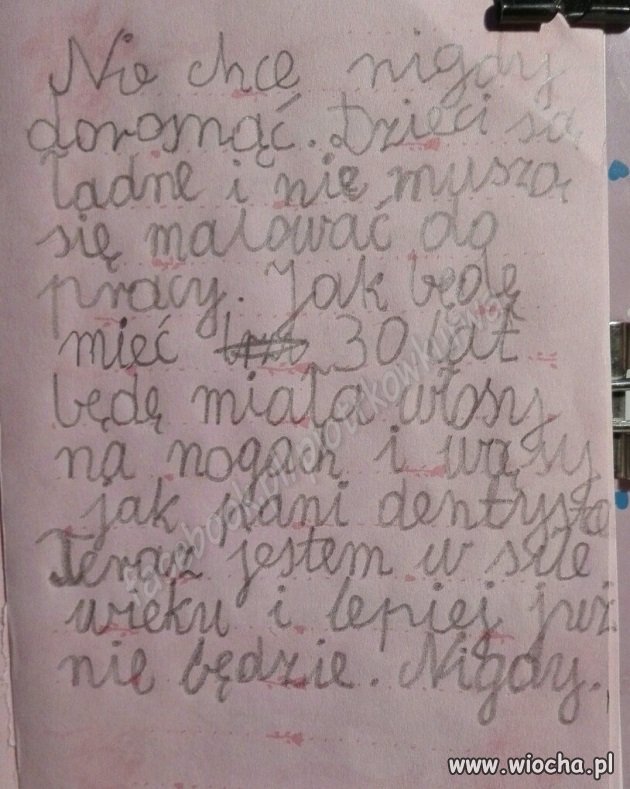 Nie chcę nigdy
dorosnąć. Dzieci są
ładne i nie muszą
się malować do
pracy. Jak będę
mieć 30 lat
będę miała włosy
na nogach i wąsy
jak pani dentysta
Teraz jestem w sile
wieku i lepiej już
nie będzie. Nigdy.
www.wiocha.pl